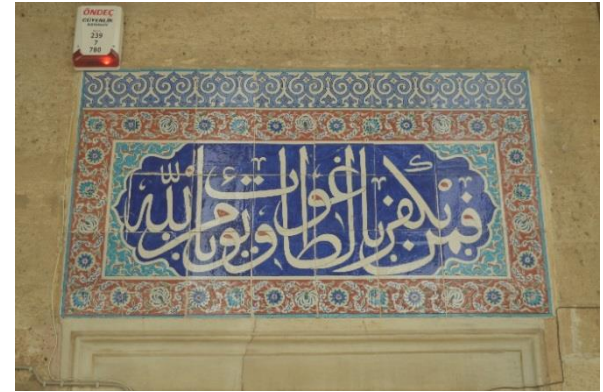 ÖNDEÇ
GÜVENLİK
239
7
780
فمن يكفر بالطاغوت ويؤمن بالله